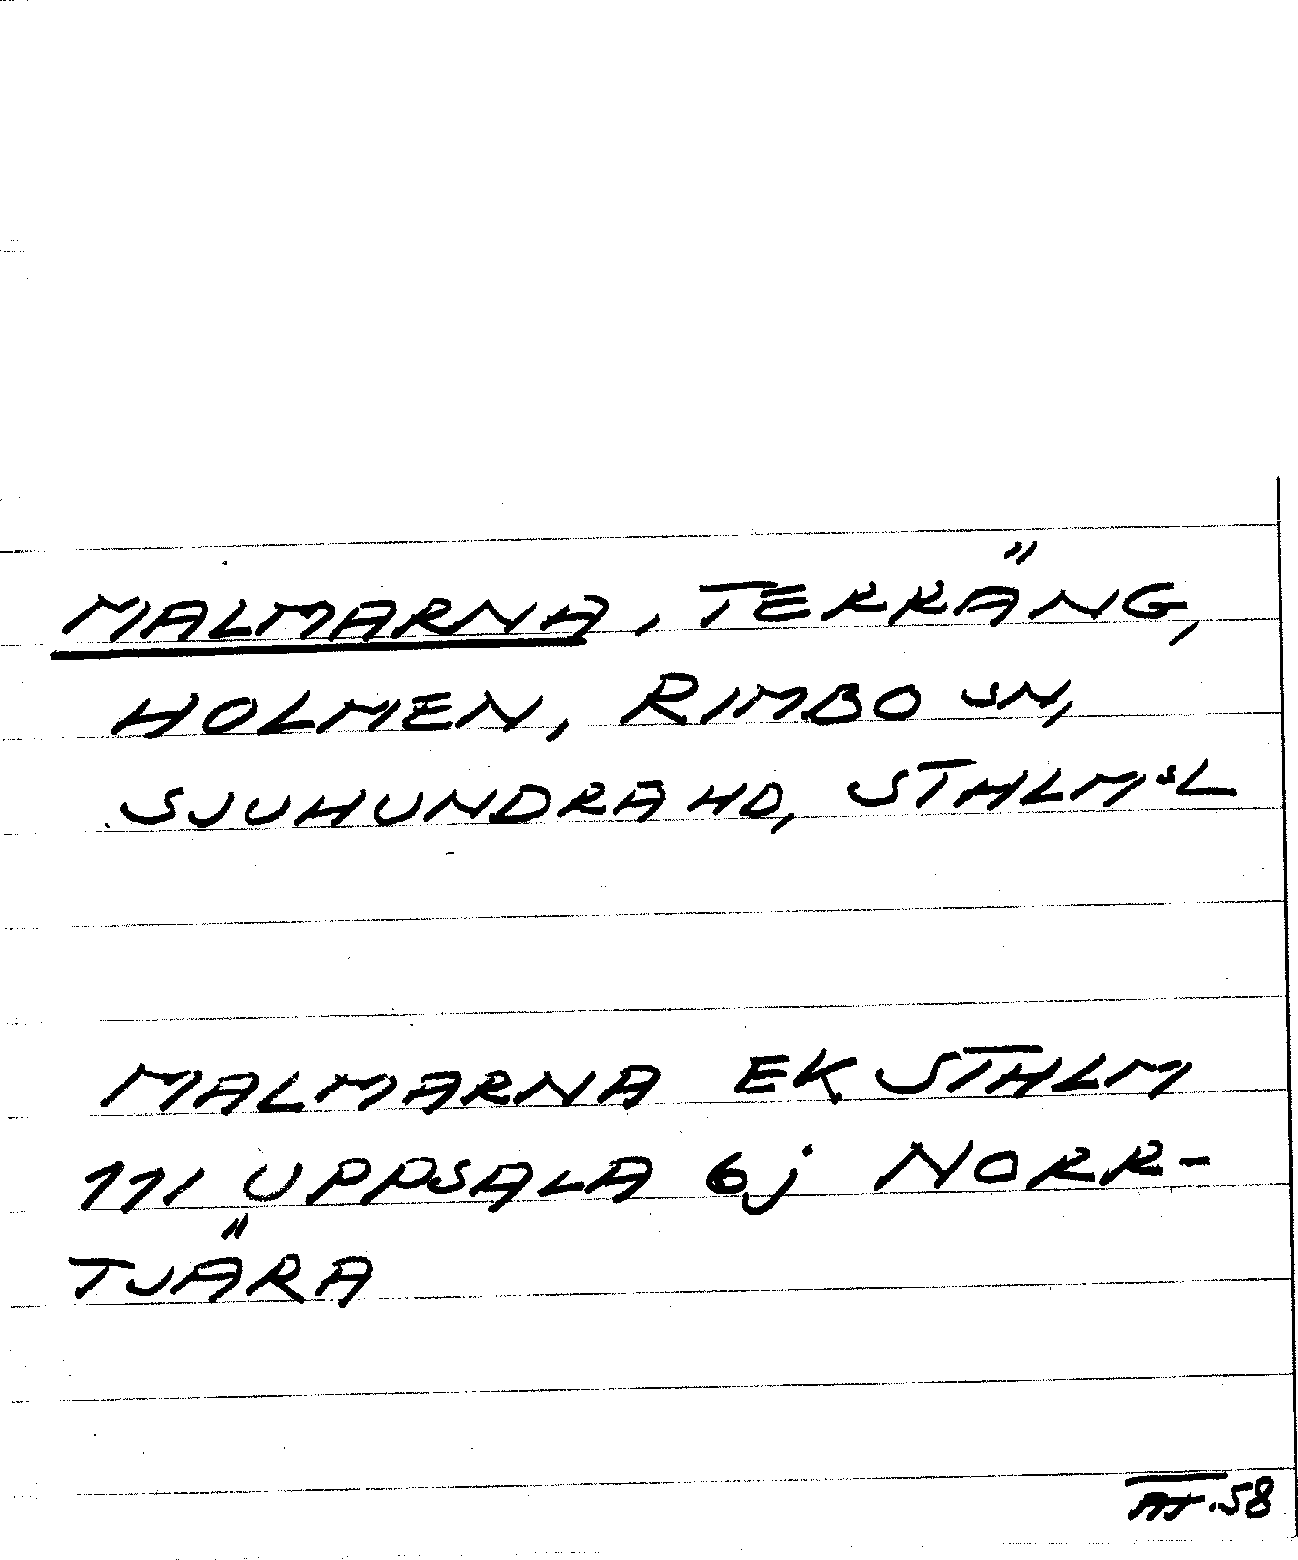 MALMARNA, TERRÄNG,
HOLMEN, RIMBO SN,
SJUHUNDRA HD, STHLMSL
MALMARNA EK STHLM
111 UPPSALA 6j NORR-
TJÄRA
.58